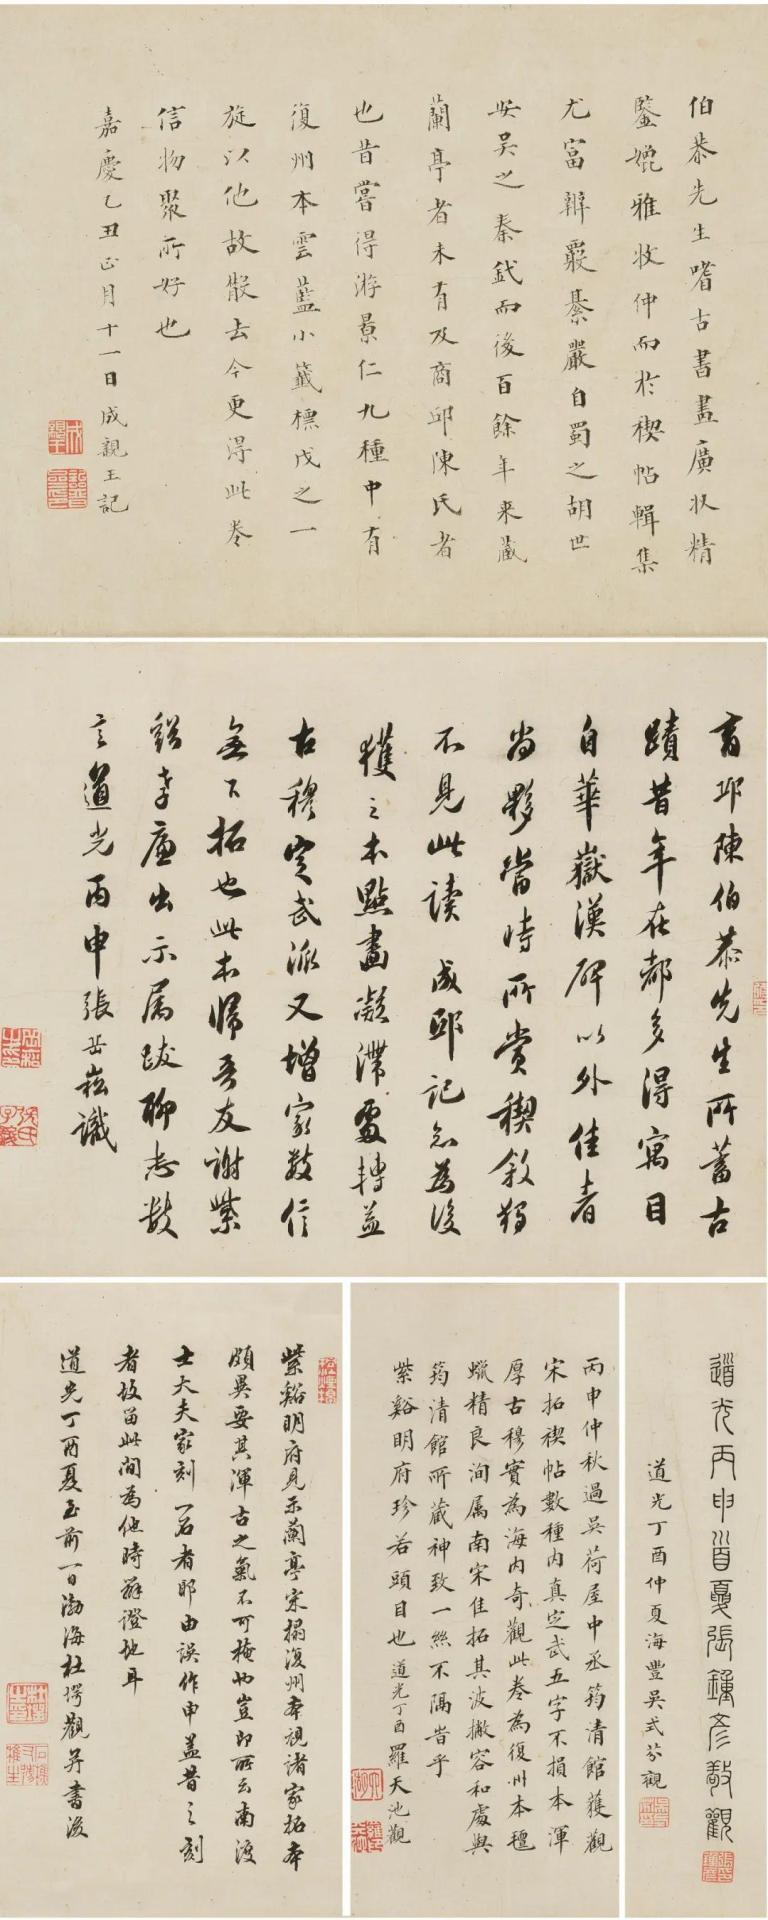 伯恭先生嗜古書畫廣收精
鑒媲雅牧仲而於禊帖輯集
尤富辨覈綦嚴自蜀之胡世
安吳之秦鉽而後百餘年來藏
蘭亭者未有及商邱陳氏者
也昔嘗得游景仁九種中有
復州本雲藍小籤標戊之一
旋以他故散去今更得此卷
信物聚所好也
嘉慶乙丑正月十一日成親王記
商邱陳伯恭先生所蓄古
蹟昔年在都多得寓目
自華嶽漢碑以外佳者
尚夥當時所賞禊敘獨
不見此讀成邸記知為後
獲之本點畫凝渾處轉益
古穆定武派又增家數信
無下拓也此本歸吾友謝紫
谿孝廉出示屬跋聊志數
言道光丙申張岳崧識
道光丙申首夏張鍾彥敬觀
道光丁酉仲夏海豐吳式芬觀
丙申仲秋過吳荷屋中丞筠清館獲觀
宋拓禊帖數種內真定武五字不損本渾
厚古穆實為海內奇觀此卷為復州本氊
蠟精良洵屬南宋佳拓其波撇容和處與
筠清館所藏神致一絲不隔昔乎
紫谿明府珍若頭目也道光丁酉羅天池觀
紫谿明府見示蘭亭宋搨復州本視諸家拓本
頗異要其渾古之氣不可掩也豈即所云南渡
士大夫家刻一石者耶由誤作申蓋昔之刻
者故留此間為他時辨證地耳
道光丁酉夏至前一日渤海杜堮觀并書後